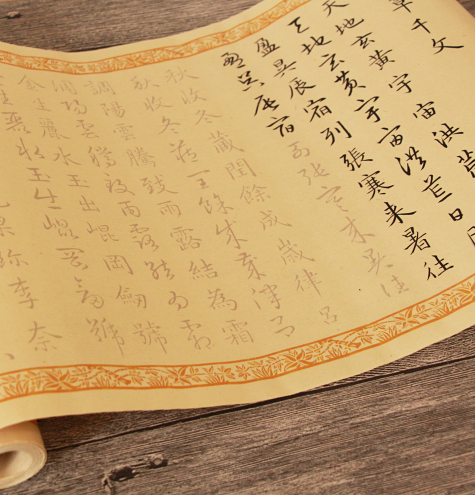 草千文
天地玄黃宇宙洪荒
天地玄黃宇宙洪荒日月
盈昃辰宿列張寒来暑往
盈昃辰宿列張寒来暑往
秋收冬藏閏餘成歲律呂
秋收冬藏閏餘成歲律呂
調陽雲騰致雨露結為霜
調陽雲騰致雨露結為霜
金生麗水玉出崐岡劍號
金生麗水玉出崐岡劍號
珍李柰